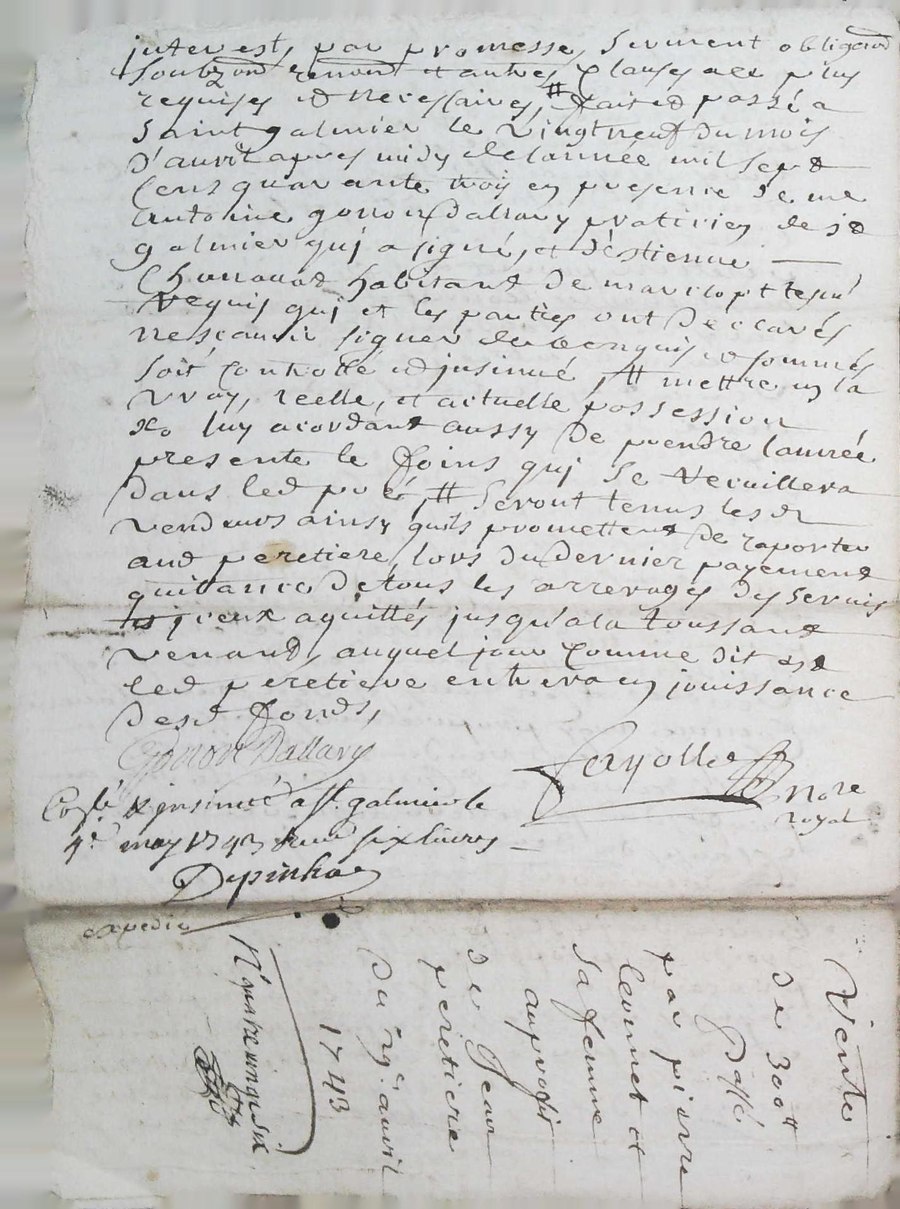 interest, par promesse, serment obligaon
soubzon renon et autres clauses a ce plus
requises et necessaires, # fait et passé a
Saint galmier le vingtneuf du mois
d'avril apres midy de lannée mil sept
cens quarante trois en presence de me
antoine gonon Dallary praticien de st
galmier qui a signé, et d'estienne
habitant de marclopt tesm
requis qui et les parties ont declarés
ne scavoir signer de ce enquis et sommés
soit controllé et insinué, # mettre en la
vray, reelle, et actuelle possession
luy acordant aussy de prendre lannée
presente le foins qui se recuillera
dans led pré, # seront tenus lesd
vendeurs ainsy quils promettent de raporter
aud peretiere lors du dernier payement
quittance de tous les arrerages des servis
iceux aquittés jusqu'a la toussant
venant, auquel jour comme dit est
led peretiere entrera en jouissance
desd fonds,
Gonon Dallary
Feryolle nore
royal
Coslé & insinué a st. galmier le
4e may 1743 six livres
Depinhac
expedié
Vente
de 300 #
Passé
par pierre
et
sa femme
au profit
de Jean
peretiere
Du 29e avril
1743